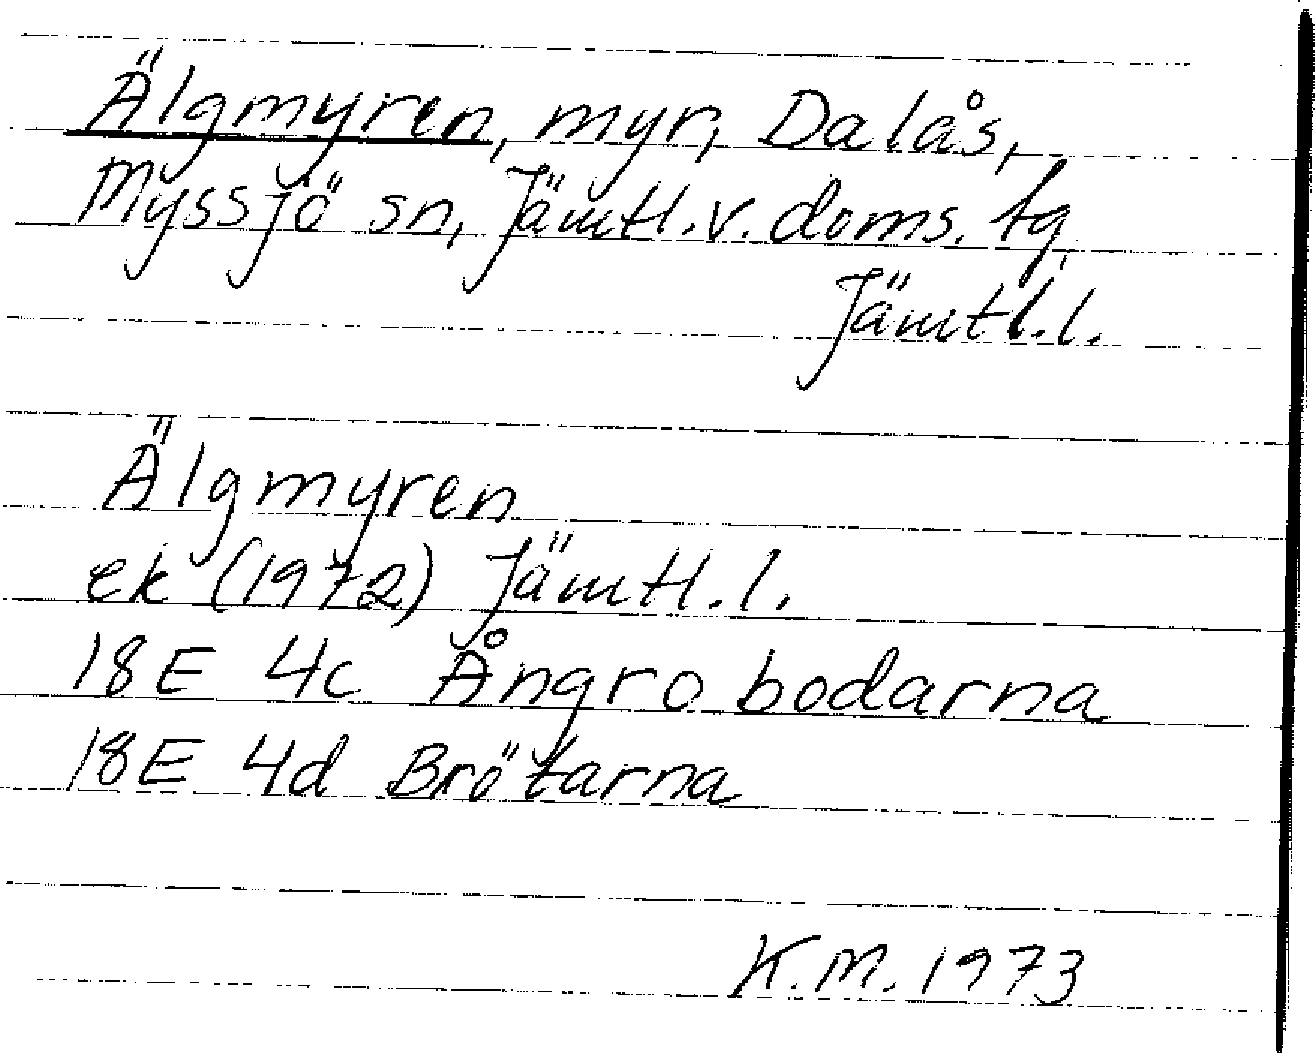 Älgmyren, myr, Dalås,
Myssjö sn, Jämtl.v.doms.tg
Jämtl.l.
Älgmyren
ek (1972) Jämtl.l.
18E 4c Ångrobodarna
18E 4d Brötarna
K.M. 1973